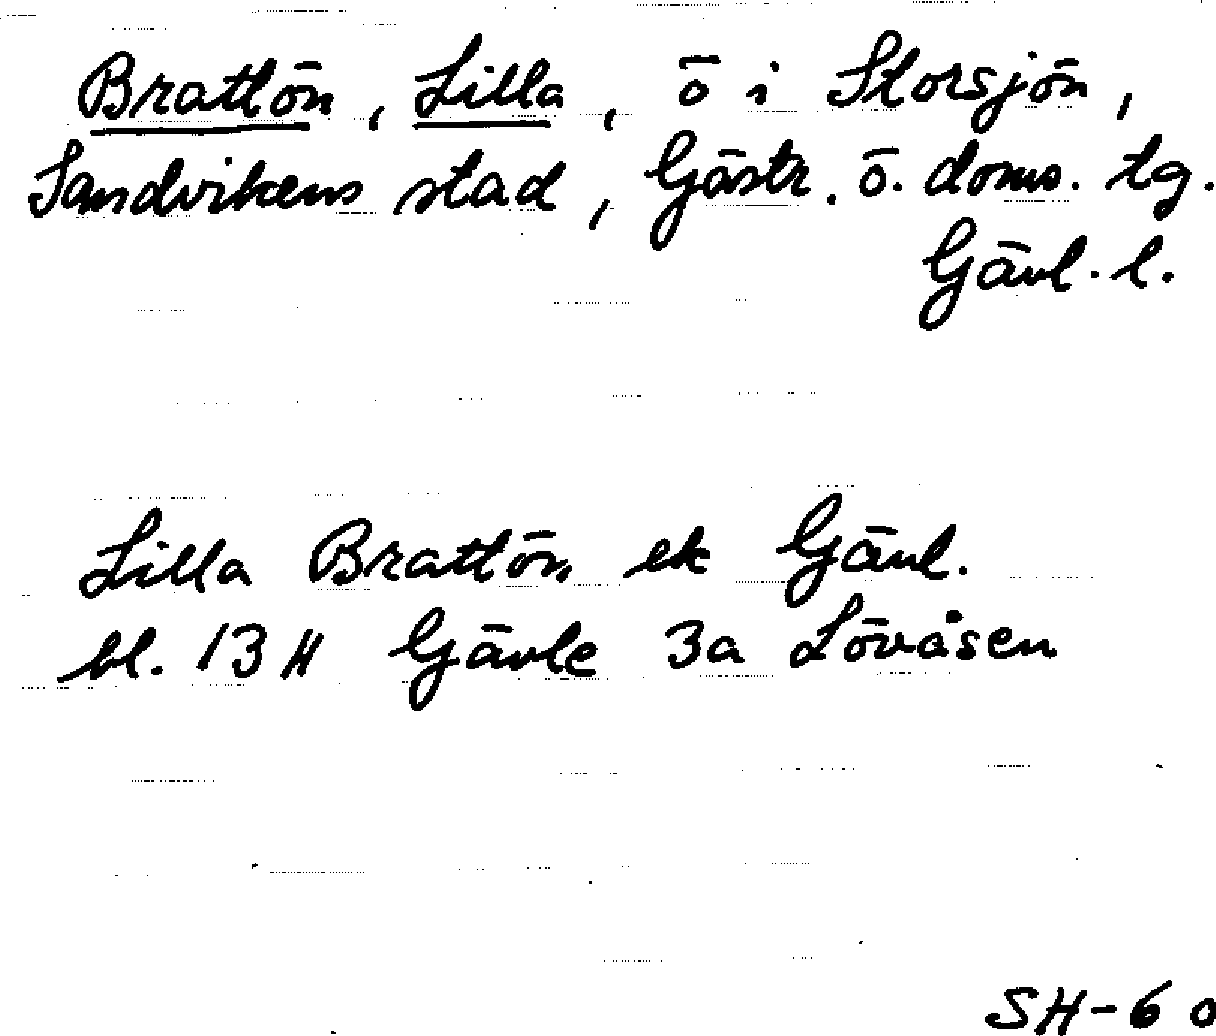 Brattön, Lilla, ö i Storsjön,
Sandvikens stad, Gästr. ö. doms. tg.
Gävl. l.
Lilla Brattön ek Gävl.
bl. 13 H Gävle 3a Lövåsen
SH-60